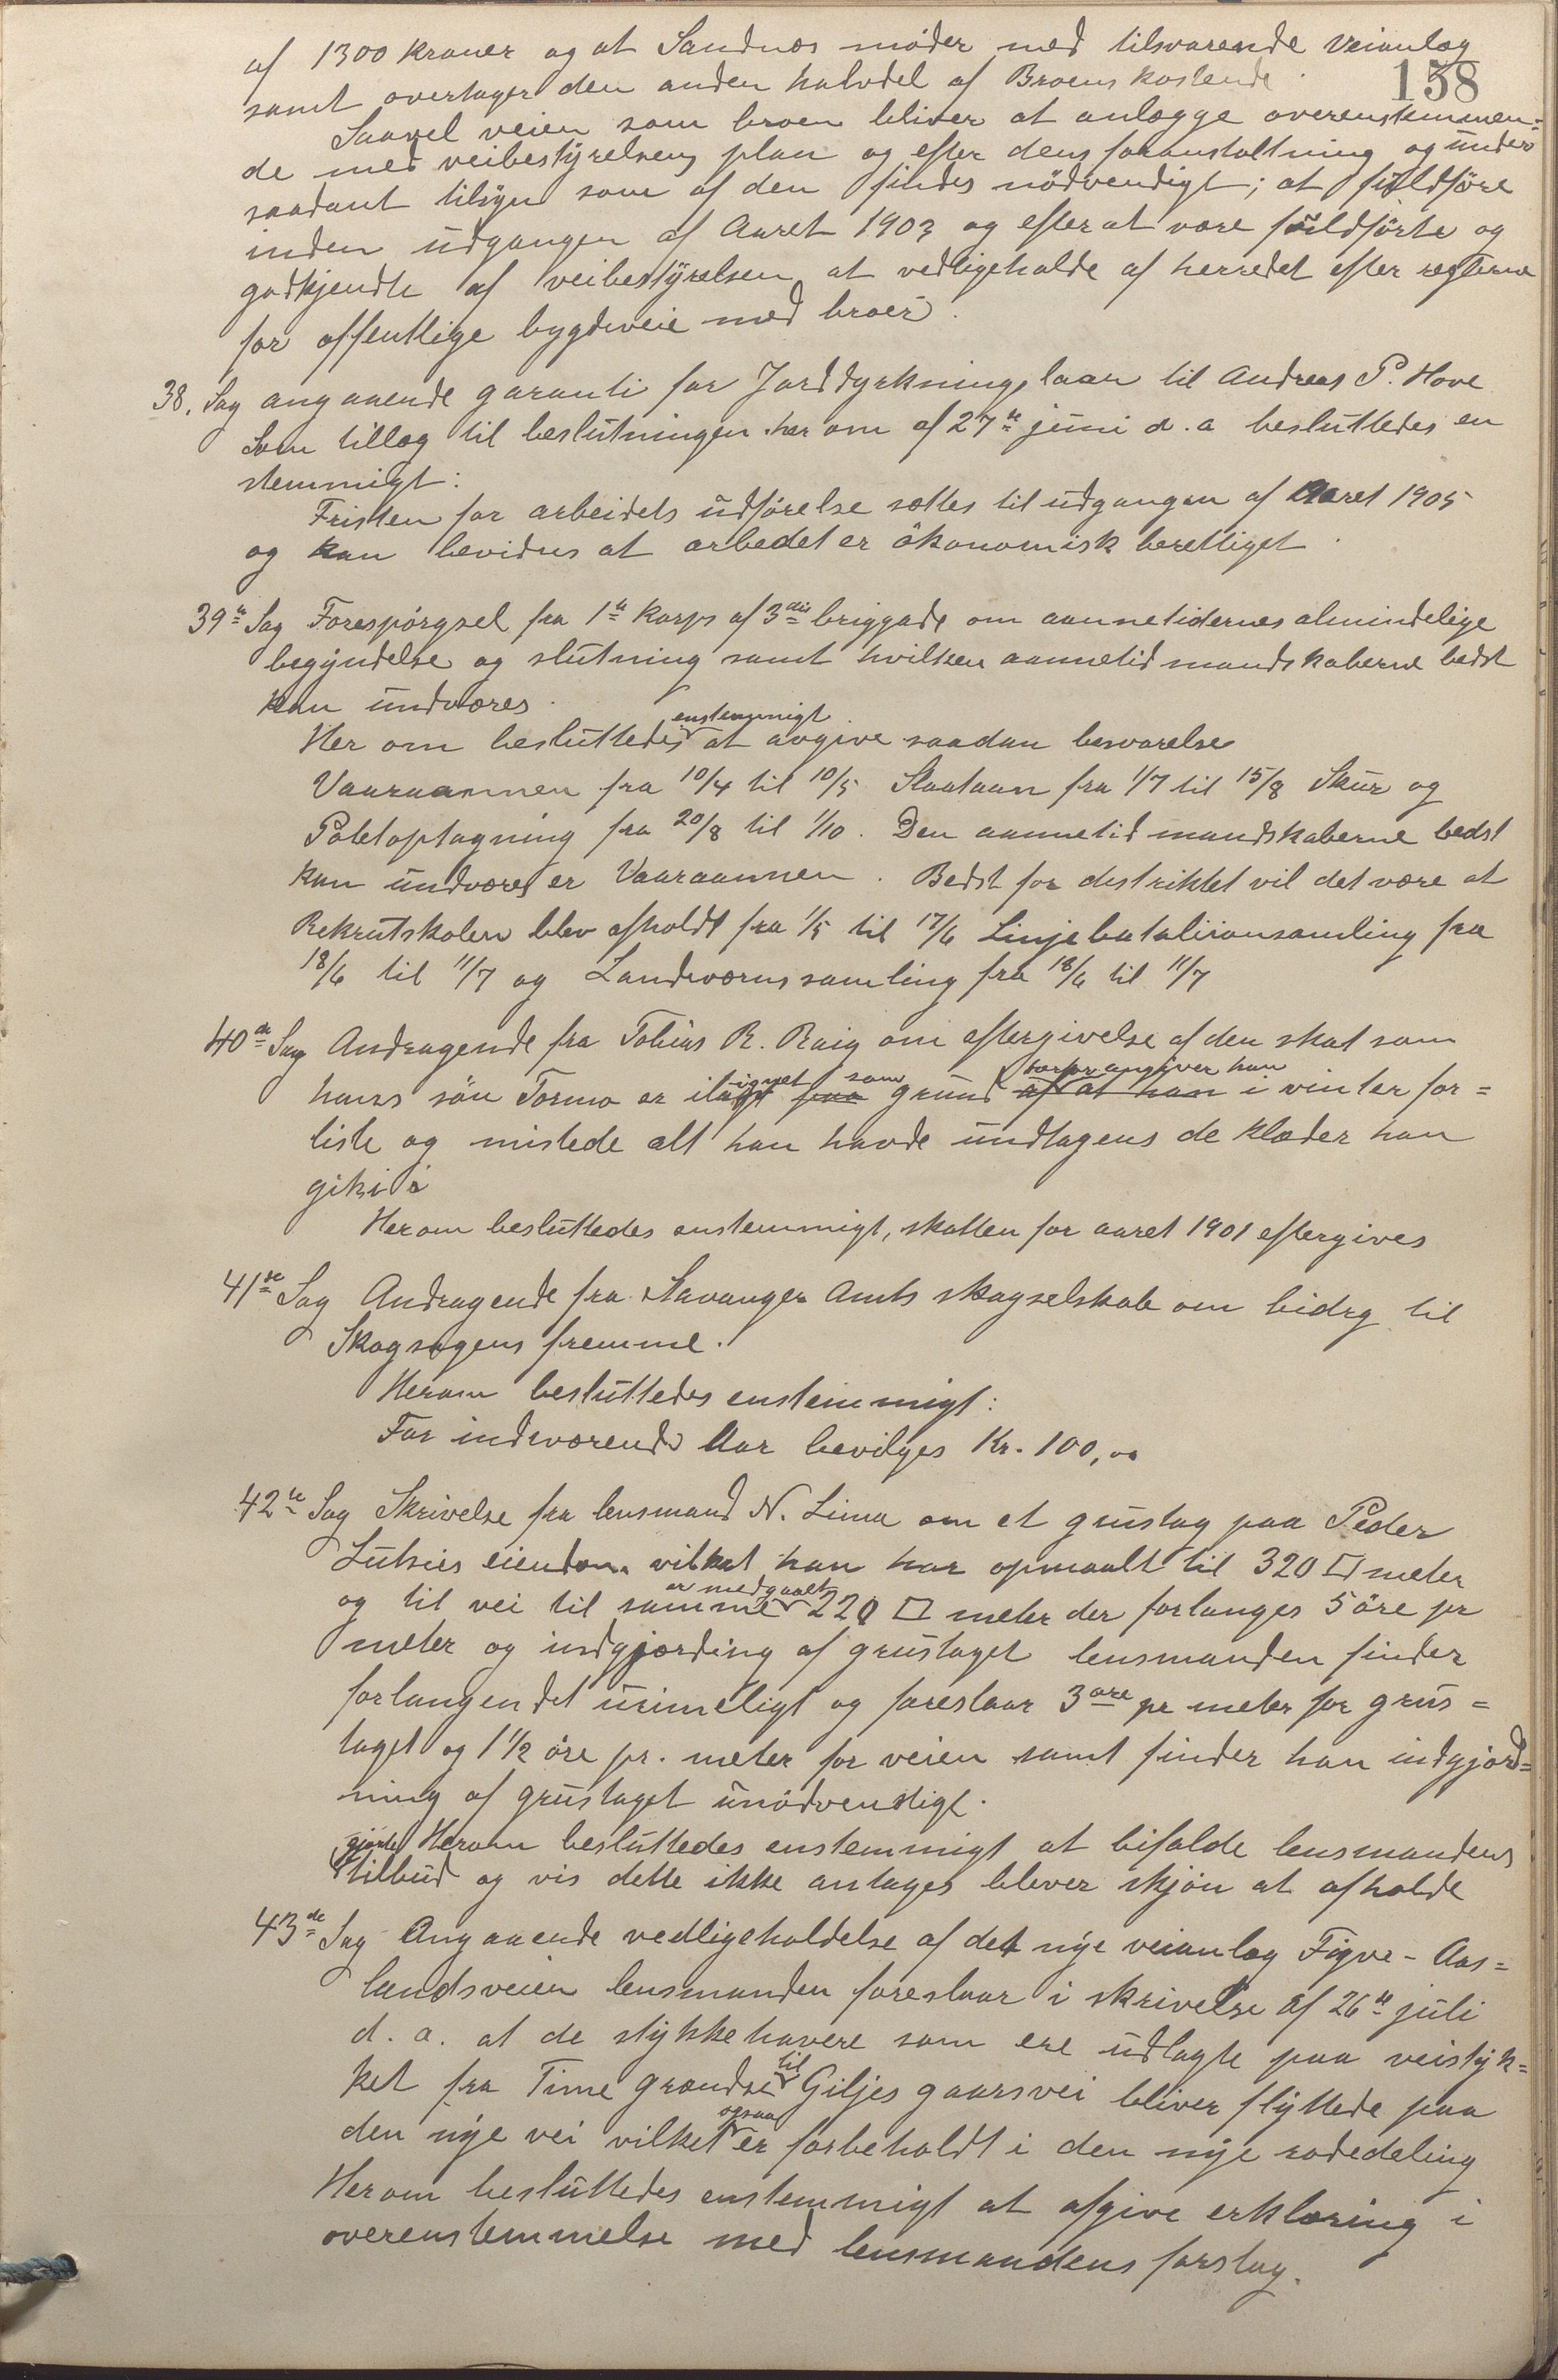 158
af 1300 kroner og at Sandnæs möder med tilsvarende veianlæg
samt overtager den anden halvdel af Broens kostende.
Saavel veien som broen bliver at anlægge overenskommen=
de med veibestyrelsens plan og efter dens foranstaltning og under
saadant tilsyn som af den findes nödvendigt; at fuldföre
inden udgangen af Aaret 1903 og efter at være fuldförte og
godkjendte af veibestyrelsen at vedligeholde af herredet efter reglerne
for offentlige bygdeveie med broer.
38. Sag angaaende garanti for Jorddyrkningslaan til Andreas P. Hove
Som tillæg til beslutningen her om af 27de juni d.a besluttedes en
stemmigt:
Fristen for arbeidets udförelse sættes til udgangen af Aaret 1905
og kan bevidnes at arbedet er ökonomisk berettiget.
39te Sag Forespörgsel fra 1te Korps af 3die briggade om aannetidernes almindelige
begyndelse og slutning samt hvilken aannetid mandskaberne bedst
kan undværes.
Her om besluttedes enstemmigt at avgive saadan besvarelse
Vaaraannen fra 10/4 til 10/5 Slaataan fra 1/7 til 15/8 Skur og
Potetoptagning fra 20/8 til 1/10. Den aannetid mandskaberne bedst
kan undværes er Vaaraannen. Bedst for distriktet vil det være at
Rekrutskolen blev afholdt fra 1/5 til 17/6 Linjebatalionsamling fra
18/6 til 11/7 og Landværnssamling fra 18/6 til 11/7
40de Sag Andragende fra Tobias R. Raig om eftergivelse af den skat som
hans sön Tormo er ilignet paa som grund af at han hvorfor angiver han i vinter for=
liste og mistede alt han havde undtagens de klæder han
gik i
Herom besluttedes enstemmigt, skatten for aaret 1901 eftergives
41de Sag Andragende fra Stavanger Amts skogselskab om bidrg til
Skogsagens fremme.
Herom besluttedes enstemmigt:
For indeværende Aar bevilges Kr. 100,00
42de Sag Skrivelse fra lensmand N. Lima om et grustag paa Peder
Lutsies eiendom vilket han har opmaalt til 320 □ meter
og til vei til samme er medgaaet 220 □ meter der forlanges 5 öre pr
meter og indgjærding af grustaget lensmanden finder
forlangendet urimeligt og foreslaar 3 öre pr meter for grus=
taget og 1 1/2 öre pr. meter for veien samt finder han indgjærd=
ning af grustaget unödvendigt.
Herom besluttedes enstemmigt at bifalde lensmandens
gjorte tilbud og vis dette ikke antages blever skjön at afholde
43de Sag Angaaende vedligeholdelse af det nye veianlæg Figve-Aas=
landsveien lensmanden foreslaar i skrivelse af 26de juli
d.a. at de stykkehavere som ere udlagte paa veistyk=
ket fra Time grændse til Giljes gaarsvei bliver flyttede paa
den nye vei vilket ogsaa er forbeholdt i den nye rodedeling
Herom besluttedes enstemmigt at afgive erklæring i
overenstemmelse med lensmandens forslag.